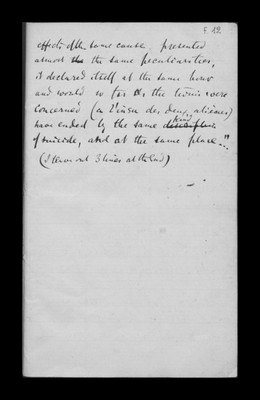 f. 12
effects of the same cause, presented
almost the same peculiarities,
it declared itself at the same hour
and would so far as the twins were
concerned (a l'insu des deux aliénés)
have ended by the same kind
of suicide, and at the same place..."
(I leave out 3 lines at the end)